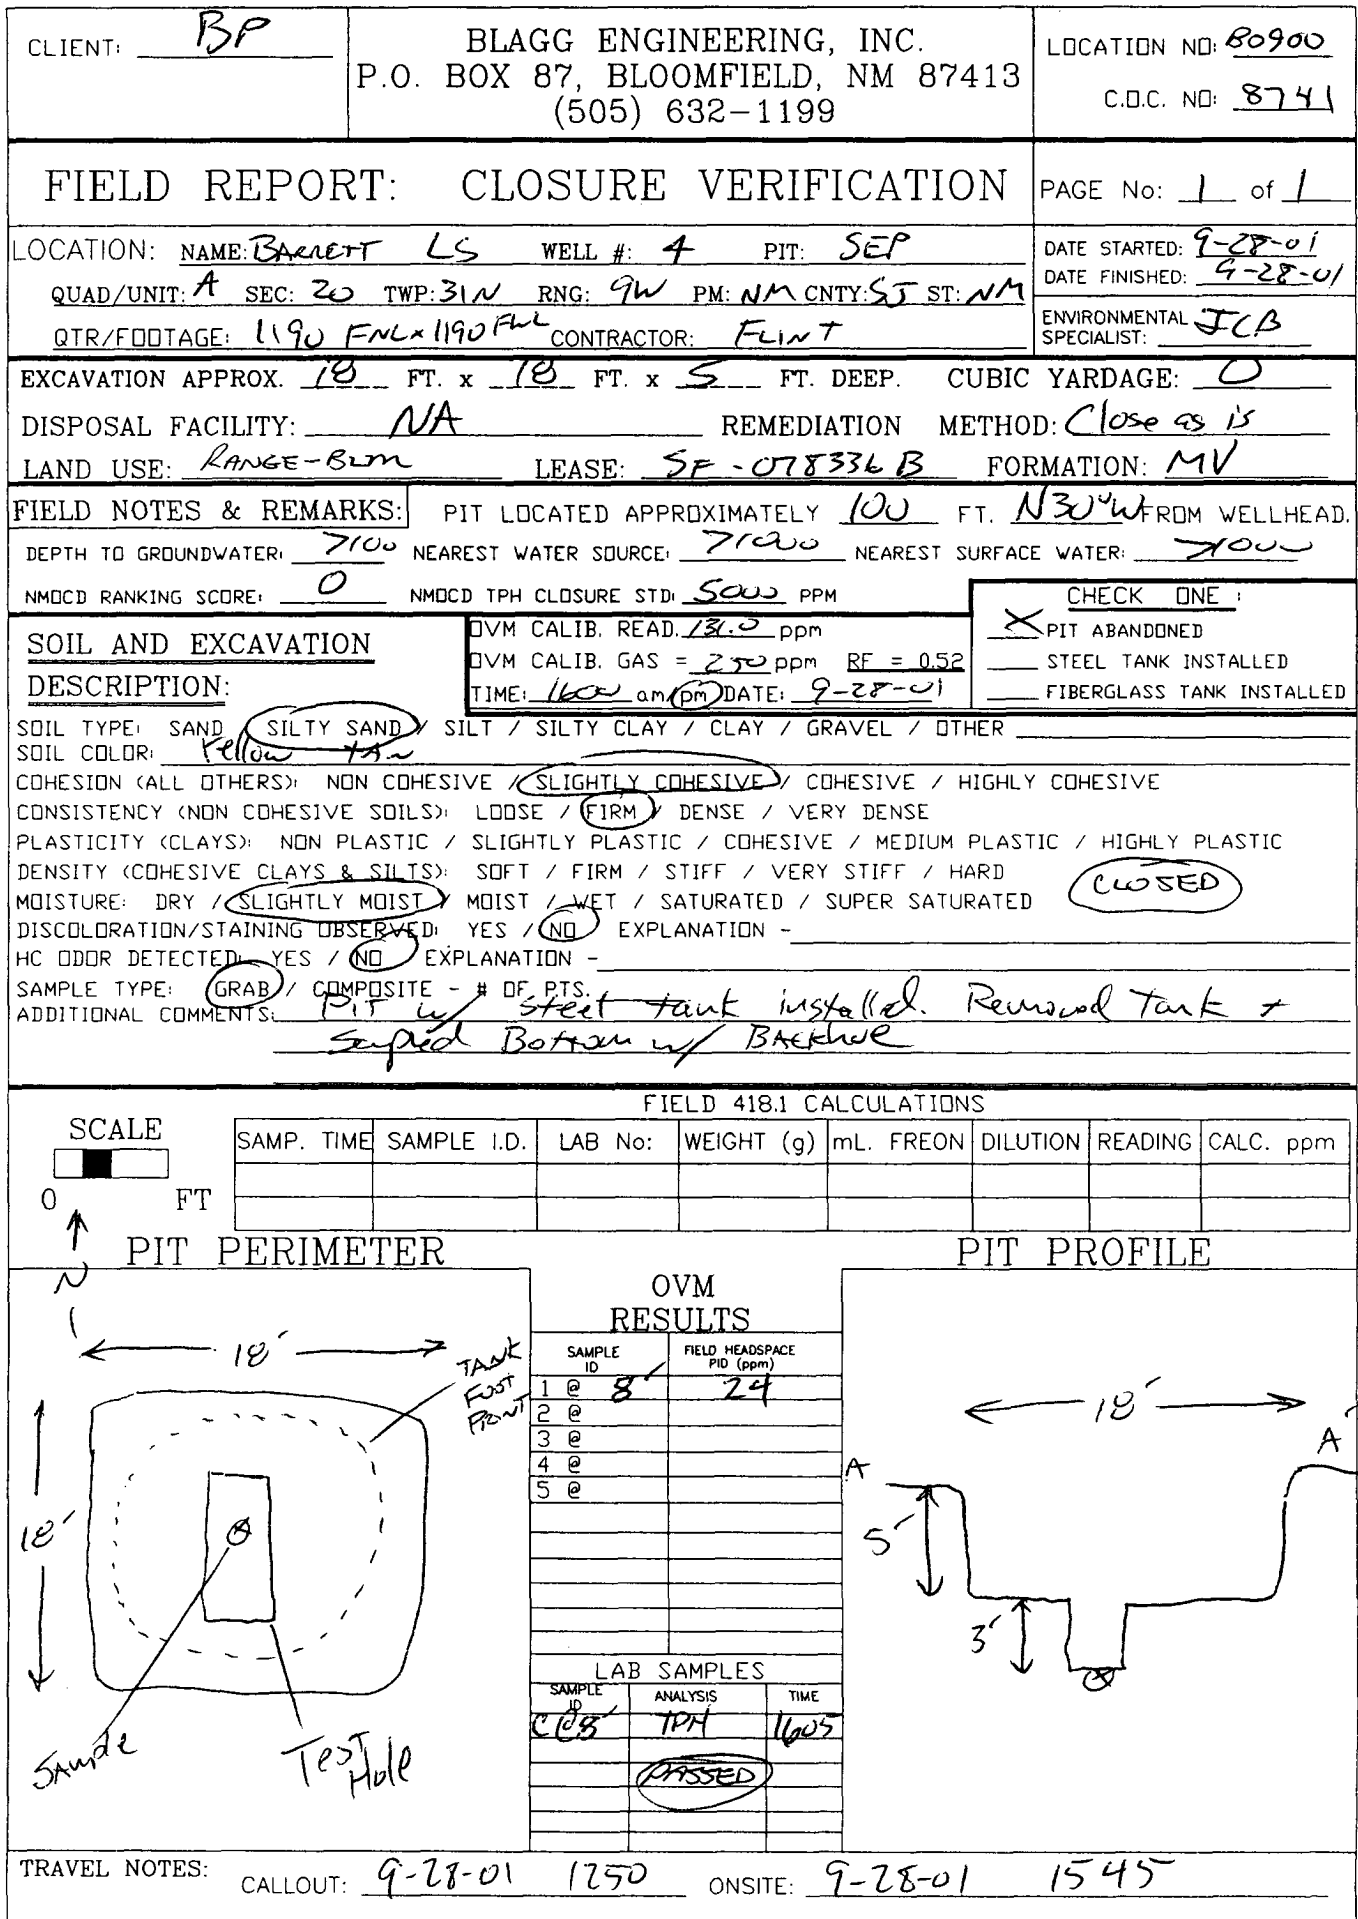 CLIENT: BP
BLAGG ENGINEERING, INC.
P.O. BOX 87, BLOOMFIELD, NM 87413
(505) 632-1199
LOCATION NO: B0900
C.O.C. NO: 8741
FIELD REPORT: CLOSURE VERIFICATION
PAGE No: 1 of 1
LOCATION: NAME: BARRETT LS WELL #: 4 PIT: SEP
QUAD/UNIT: A SEC: 20 TWP: 31N RNG: 9W PM: NM CNTY: SJ ST: NM
QTR/FOOTAGE: 1190 FNL x 1190 FWL CONTRACTOR: FLINT
DATE STARTED: 9-28-01
DATE FINISHED: 9-28-01
ENVIRONMENTAL SPECIALIST: JCB
EXCAVATION APPROX. 18 FT. x 18 FT. x 5 FT. DEEP. CUBIC YARDAGE: 0
DISPOSAL FACILITY: NA REMEDIATION METHOD: Close as is
LAND USE: RANGE-BLM LEASE: SF-078336 B FORMATION: MV
FIELD NOTES & REMARKS: PIT LOCATED APPROXIMATELY 100 FT. N30°W FROM WELLHEAD.
DEPTH TO GROUNDWATER: >100 NEAREST WATER SOURCE: >1000 NEAREST SURFACE WATER: >1000
NMOCD RANKING SCORE: 0 NMOCD TPH CLOSURE STD: 5000 PPM
CHECK ONE :
X PIT ABANDONED
STEEL TANK INSTALLED
FIBERGLASS TANK INSTALLED
SOIL AND EXCAVATION
DESCRIPTION:
OVM CALIB. READ. 131.0 ppm
OVM CALIB. GAS = 250 ppm RF = 0.52
TIME: 1600 am/pm DATE: 9-28-01
SOIL TYPE: SAND / SILTY SAND / SILT / SILTY CLAY / CLAY / GRAVEL / OTHER
SOIL COLOR: Yellow TAN
COHESION (ALL OTHERS): NON COHESIVE / SLIGHTLY COHESIVE / COHESIVE / HIGHLY COHESIVE
CONSISTENCY (NON COHESIVE SOILS): LOOSE / FIRM / DENSE / VERY DENSE
PLASTICITY (CLAYS): NON PLASTIC / SLIGHTLY PLASTIC / COHESIVE / MEDIUM PLASTIC / HIGHLY PLASTIC
DENSITY (COHESIVE CLAYS & SILTS): SOFT / FIRM / STIFF / VERY STIFF / HARD
CLOSED
MOISTURE: DRY / SLIGHTLY MOIST / MOIST / WET / SATURATED / SUPER SATURATED
DISCOLORATION/STAINING OBSERVED: YES / NO EXPLANATION -
HC ODOR DETECTED: YES / NO EXPLANATION -
SAMPLE TYPE: GRAB / COMPOSITE - # OF PTS.
ADDITIONAL COMMENTS: PIT w/ steel tank installed. Removed Tank +
Sampled Bottom w/ BACKHOE
FIELD 418.1 CALCULATIONS
SCALE
0 FT
SAMP. TIME SAMPLE I.D. LAB No: WEIGHT (g) mL. FREON DILUTION READING CALC. ppm
N
PIT PERIMETER
18'
TANK
FOOT
PRINT
18'
Sample
Test
Hole
OVM
RESULTS
SAMPLE ID FIELD HEADSPACE PID (ppm)
1 @ 8' 24
2 @
3 @
4 @
5 @
LAB SAMPLES
SAMPLE ID ANALYSIS TIME
C@8' TPH 1605
PASSED
PIT PROFILE
18'
A A'
5'
3'
TRAVEL NOTES: CALLOUT: 9-28-01 1250 ONSITE: 9-28-01 1545